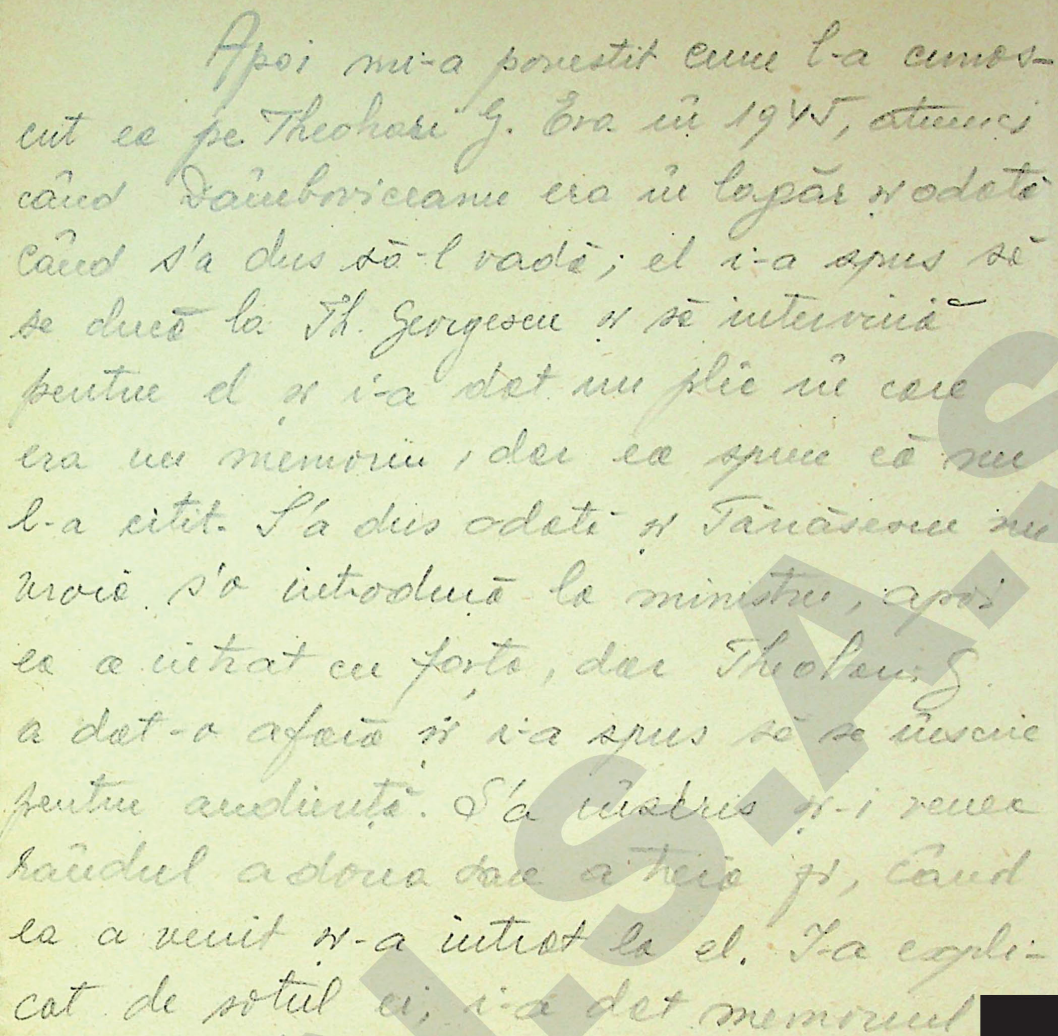 Apoi mi-a povestit cum l-a cunos-
cut ea pe Theohari G. Era în 1945, atunci
când Dâmboviceanu era în lagăr și odată
când s'a dus să-l vadă; el i-a spus să
se ducă la Th. Georgescu și să intervină
pentru el și i-a dat un plic în care
era un memoriu, dar ea spune că nu
l-a citit. S'a dus odată și Tănăsescu nu
vroia s'o introducă la ministru, apoi
ea a intrat cu forța, dar Theohari G.
a dat-o afară și i-a spus să se înscrie
pentru audiență. S'a înscris și-i venea
rândul a doua sau a treia zi, când
ea a venit și-a intrat la el. I-a expli-
cat de soțul ei, i-a dat memoriul
I.S.A.S